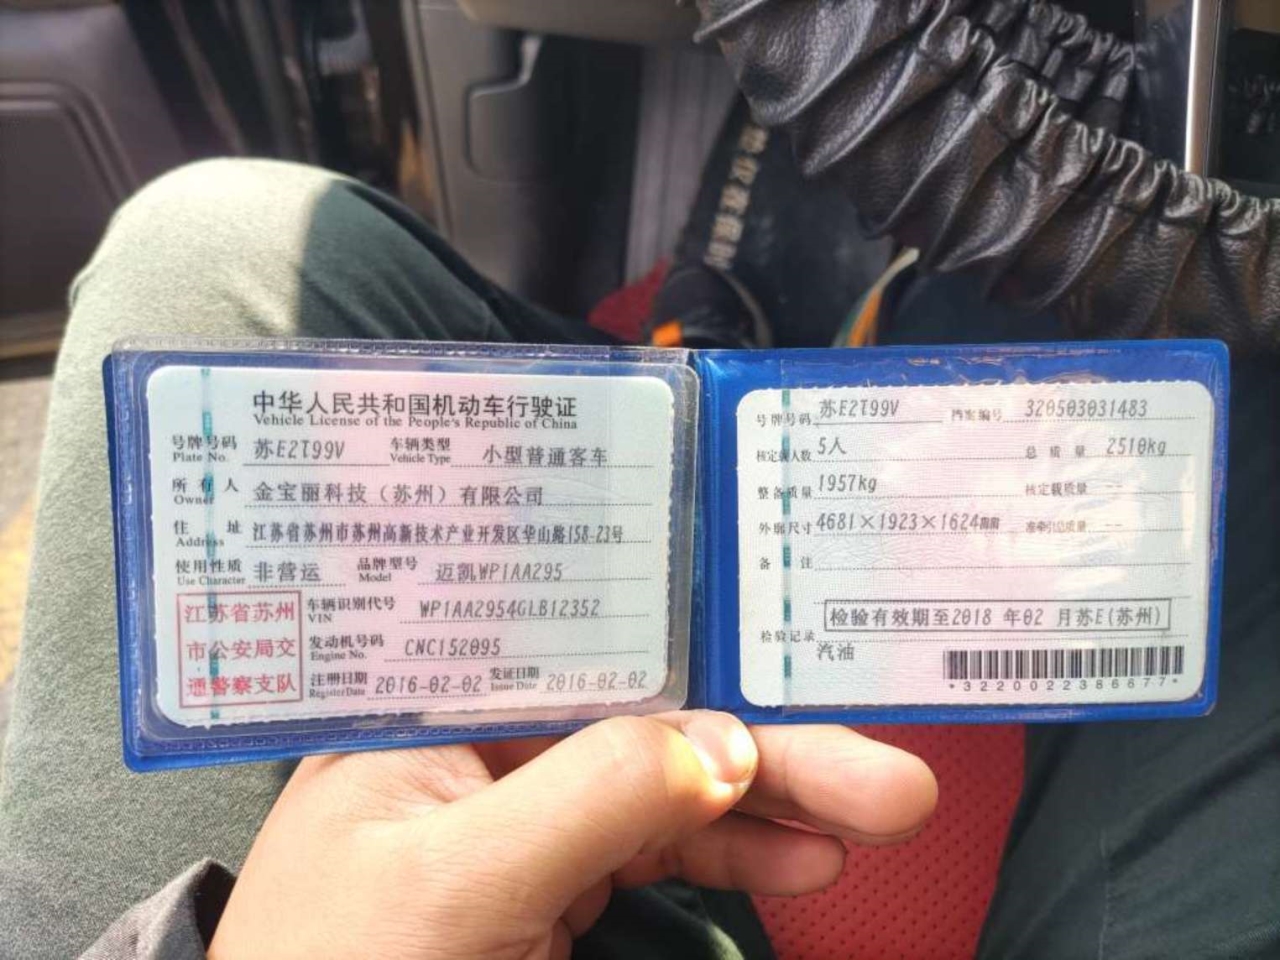 中华人民共和国机动车行驶证
Vehicle License of the People's Republic of China
号牌号码 苏E2T99V 车辆类型 小型普通客车
Plate No. Vehicle Type
所有人 金宝丽科技（苏州）有限公司
Owner
住址 江苏省苏州市苏州高新技术产业开发区华山路158-23号
Address
使用性质 非营运 品牌型号 迈凯WP1AA295
Use Character Model
江苏省苏州
市公安局交
通警察支队
车辆识别代号 WP1AA2954GLB12352
VIN
发动机号码 CNC152095
Engine No.
注册日期 2016-02-02 发证日期 2016-02-02
Register Date Issue Date
号牌号码 苏E2T99V 档案编号 320503031483
核定载人数 5人 总质量 2510kg
整备质量 1957kg 核定载质量 --
外廓尺寸 4681×1923×1624mm 准牵引总质量 --
备注
检验有效期至2018 年02 月苏E(苏州)
检验记录
汽油
*3220022386677*